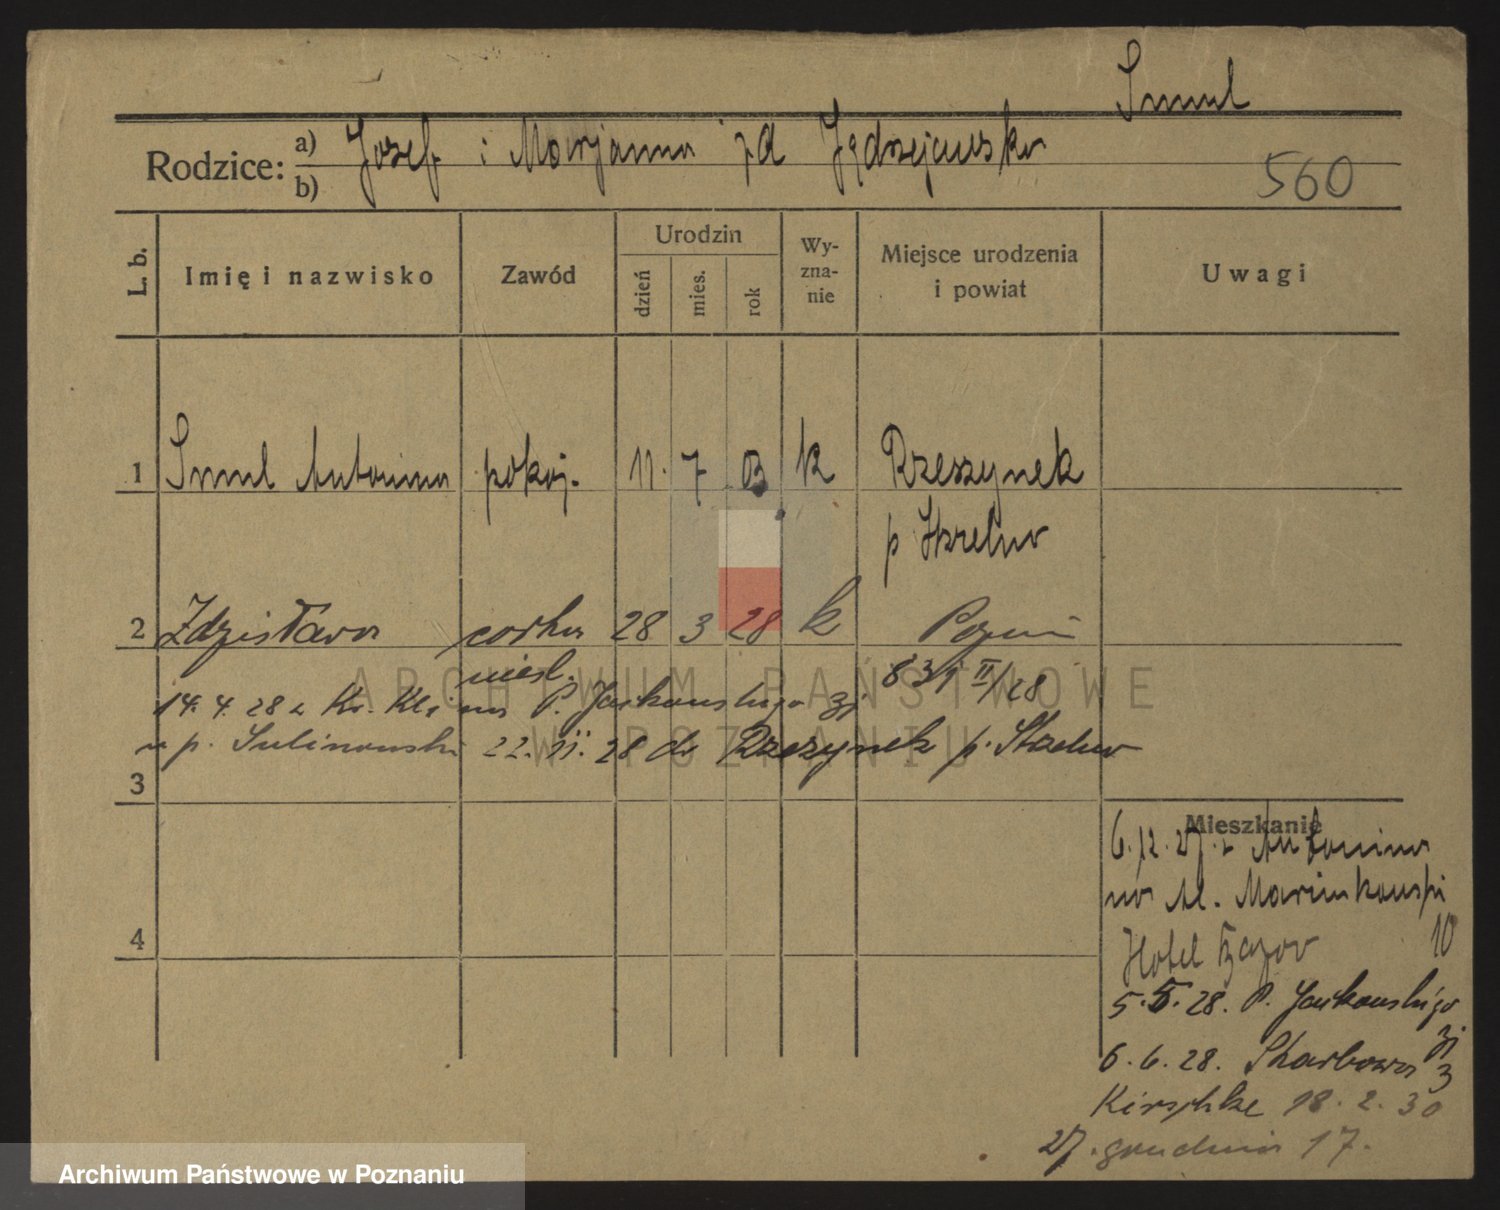 Smul
Rodzice: a) Jozef i Marjanna zd Jędrzejewska
b)
560
L. b.
Imię i nazwisko
Zawód
Urodzin
dzień
mies.
rok
Wy-
zna-
nie
Miejsce urodzenia
i powiat
Uwagi
1 Smul Antonina pokoj. 11. 7 03 k Rzeszynek
p Strelno
2 Zdzisława corka 28 3 28 k Pozn
niesl. 831 II/28
14. 4. 28 z Kr. Kli P. Jackowskiego 31
u p. Sulinowski 22. 11. 28 do Rzeszynek p. Strelno
3
Mieszkanie
6. 12. 27. z Antonina
na Al. Marcinkowski
10
Hotel Bazar
4
5. 5. 28. P. Jackowskiego
31
6. 6. 28. Skarbowa 3
Kirschke 18. 2. 30
27. grudnia 17.
ARCHIWUM PAŃSTWOWE
W POZNANIU
Archiwum Państwowe w Poznaniu